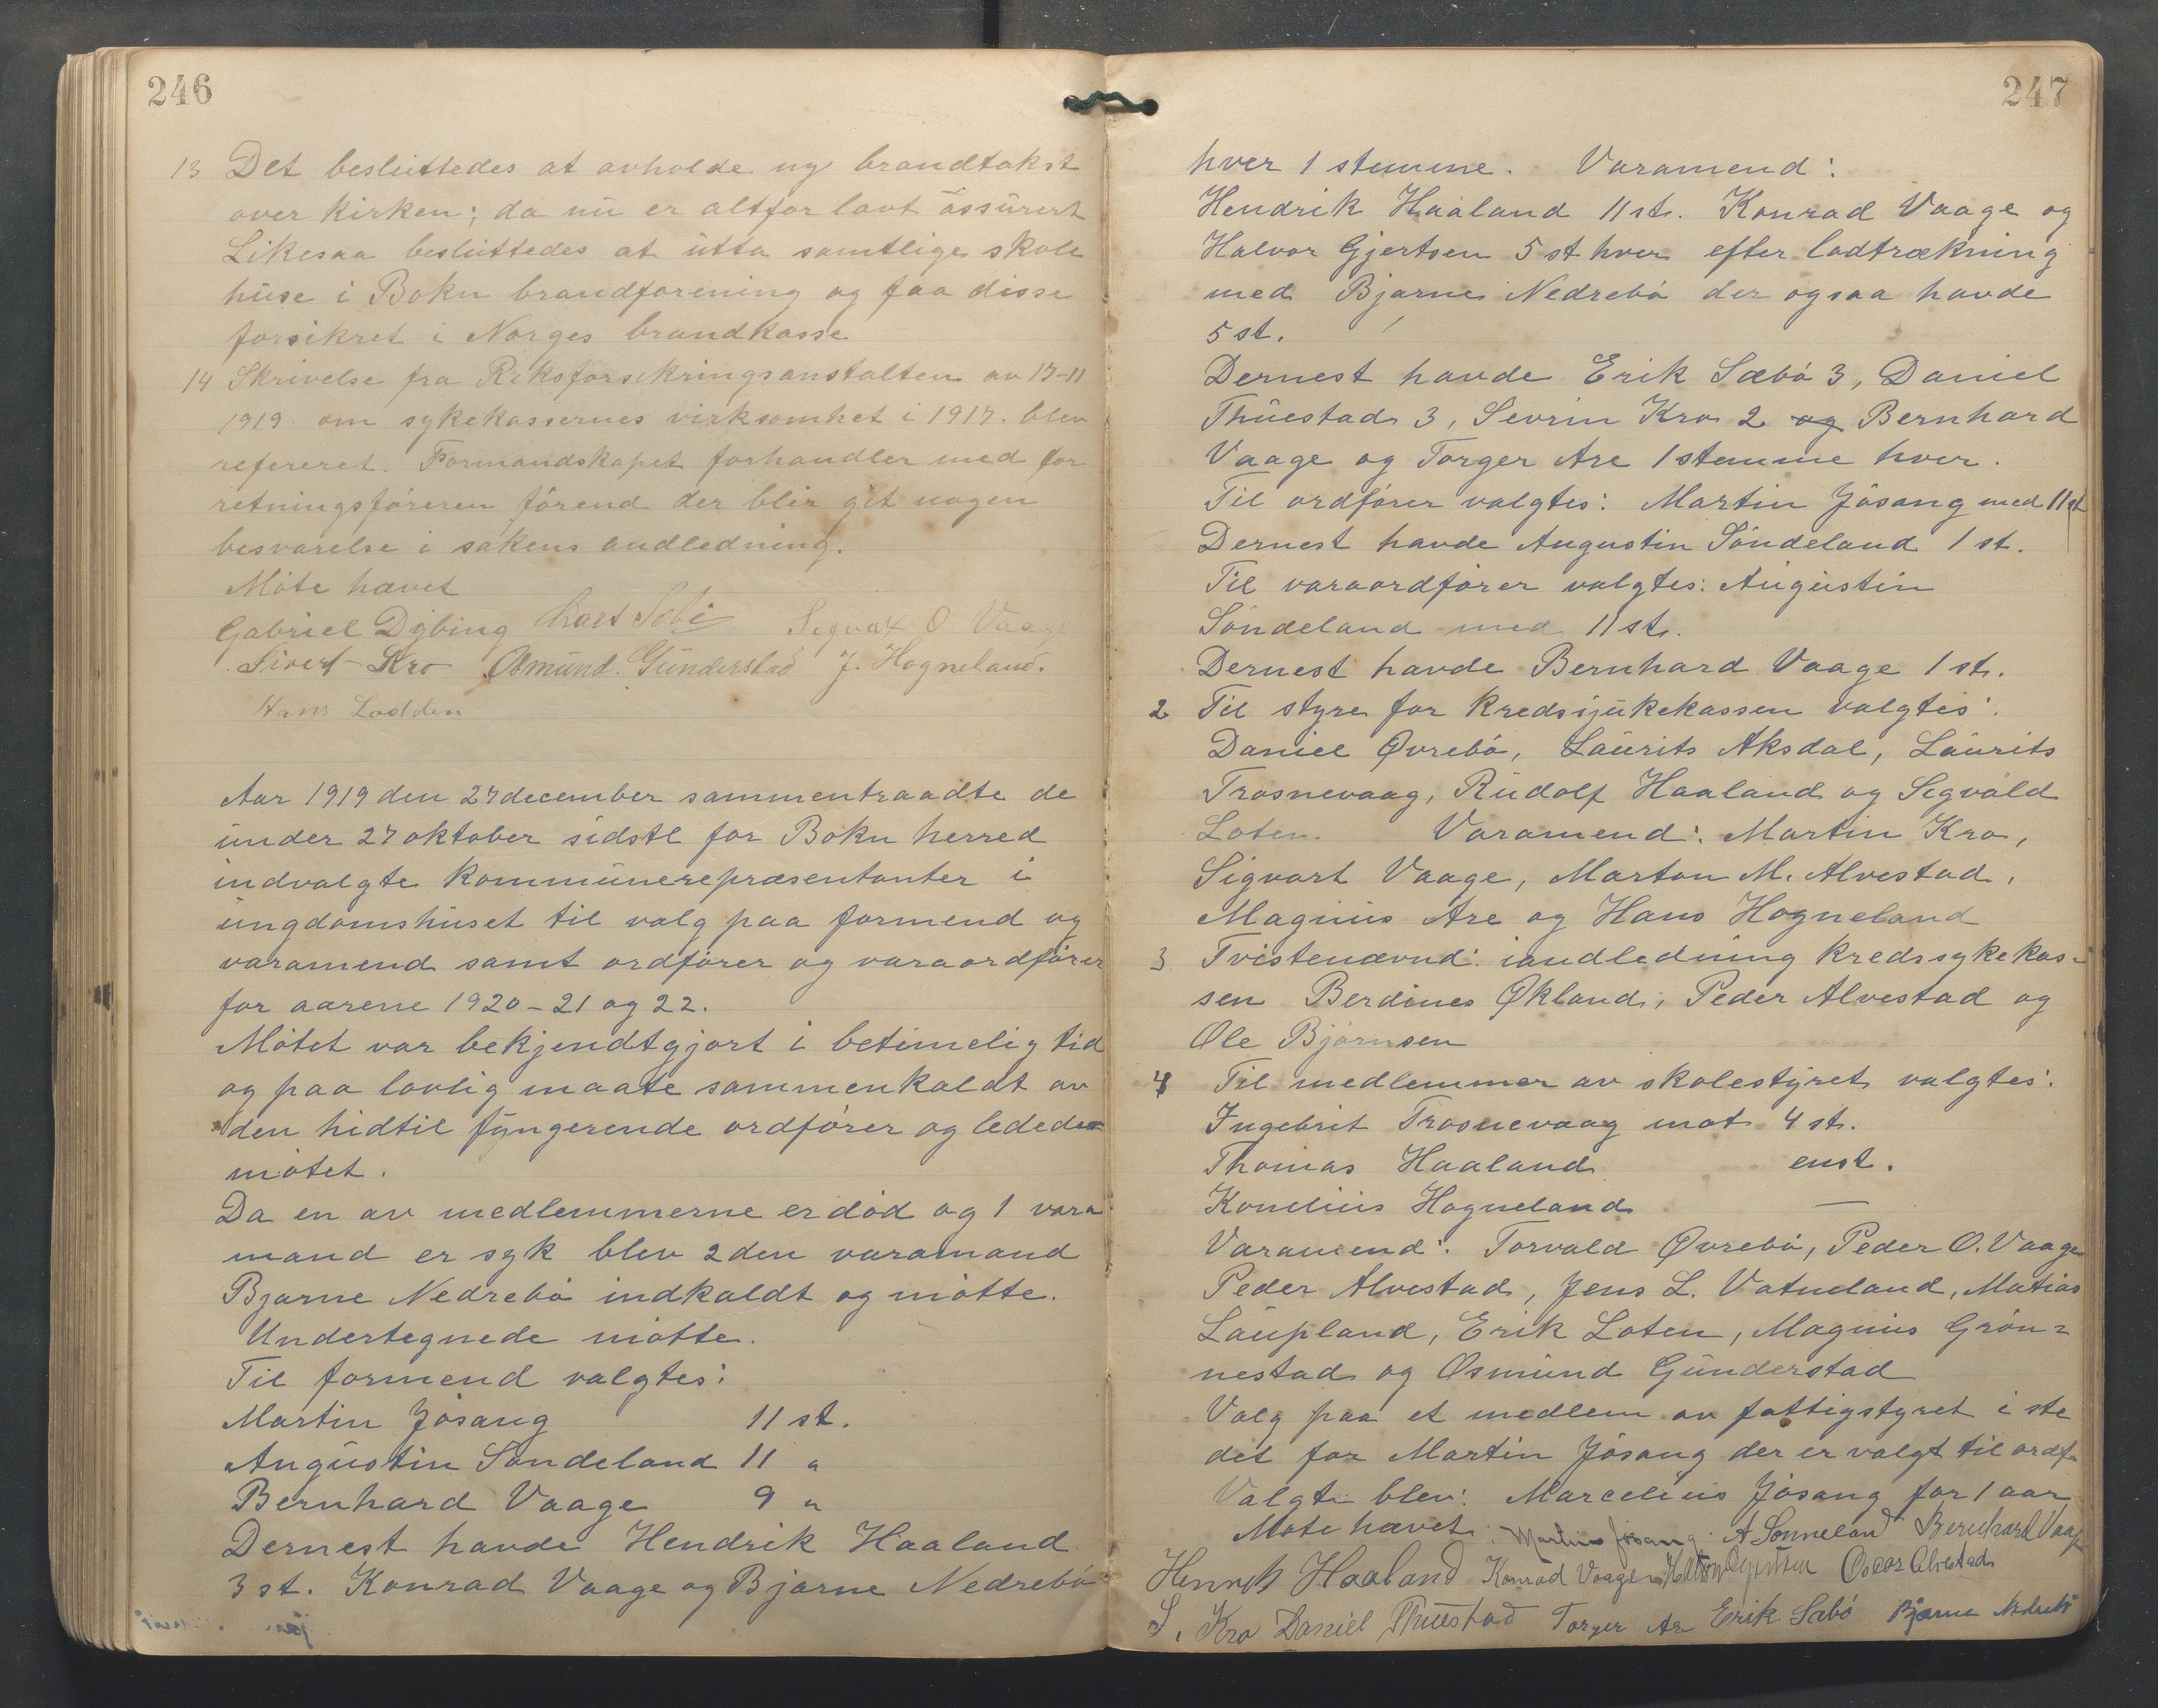 246
13 Det besluttedes at avholde ny brandtakst
over kirken; da nu er altfor lavt assurert
Likesaa besluttedes at utta samtlige skole
huse i Bokn brandforening og faa disse
forsikret i Norges brandkasse
14 Skrivelse fra Riksforsikringsanstalten av 17-11
1919 om sykekassernes virksomhet i 1917. blev
refereret. Formandskapet forhandler med for
retningsföreren förend der blir git nogen
besvarelse i sakens andledning.
Möte hævet
Gabriel Dybing Lars Sebø Segvat O Vaage
Sivert Kro Osmund Gunderstad J. Hogneland.
Hans Lodden
Aar 1919 den 27 december sammentraadte de
under 27 oktober sidstl for Bokn herred
indvalgte kommunerepræsentanter i
ungdomshuset til valg paa formend og
varamend samt ordförer og varaordförer
for aarene 1920-21 og 22.
Mötet var bekjendtgjort i betimelig tid
og paa lovlig maate sammenkaldt av
den hidtil fungerende ordförer og ledede
mötet.
Da en av medlemmerne er död og 1 vara
mand er syk blev 2den varamand
Bjarne Nedrebö indkaldt og mötte.
Undertegnede mötte.
Til formend valgtes:
Martin Jösang 11 st.
Augustin Söndeland 11 "
Bernhard Vaage 9 "
Dernest havde Hendrik Haaland
3 st. Konrad Vaage og Bjarne Nedrebö
247
hver 1 stemme. Varamend:
Hendrik Haaland 11 st. Konrad Vaage og
Halvor Gjertsen 5 st hver efter lodtrækning
med Bjarne Nedrebö der ogsaa havde
5 st.
Dernest havde Erik Sæbö 3, Daniel
Thuestad 3, Sevrin Kro 2 og Bernhard
Vaage og Torger Are 1 stemme hver.
Til ordförer valgtes: Martin Jösang med 11 st
Dernest havde Augustin Söndeland 1 st.
Til varaordförer valgtes: Augustin
Söndeland med 11 st.
Dernest havde Bernhard Vaage 1 st.
2 Til styre for kredsjukekassen valgtes:
Daniel Øvrebö, Laurits Aksdal, Laurits
Trosnevaag, Rudolf Haaland og Segvald
Loten. Varamend: Martin Kro,
Sigvart Vaage, Marton M. Alvestad,
Magnus Are og Hans Hogneland
3 Tvistenævnd: iandledning kredssykekas-
sen Berdines Økland, Peder Alvestad og
Ole Björnsen
4 Til medlemmer av skolestyret valgtes:
Ingebrit Trosnevaag mot 4 st.
Thomas Haaland enst.
Konelius Hogneland —
Varamend: Torvald Øvrebö, Peder O. Vaage
Peder Alvestad, Jens L. Vatneland, Matias
Laupland, Erik Loten, Magnus Grön=
nestad og Osmund Gunderstad
Valg paa et medlem av fattigstyret i ste
det for Martin Jösang der er valgt til ordf.
Valgt blev: Marcelius Jösang for 1 aar
Möte hævet. Martin Jösang. A Sönneland Bernhard Vaage
Henrik Haaland Konrad Vaage Halvor Gjertsen Oscar Alvestad
S. Kro Daniel Thuestad Torger Are Erik Sæbö Bjarne Nedrebö